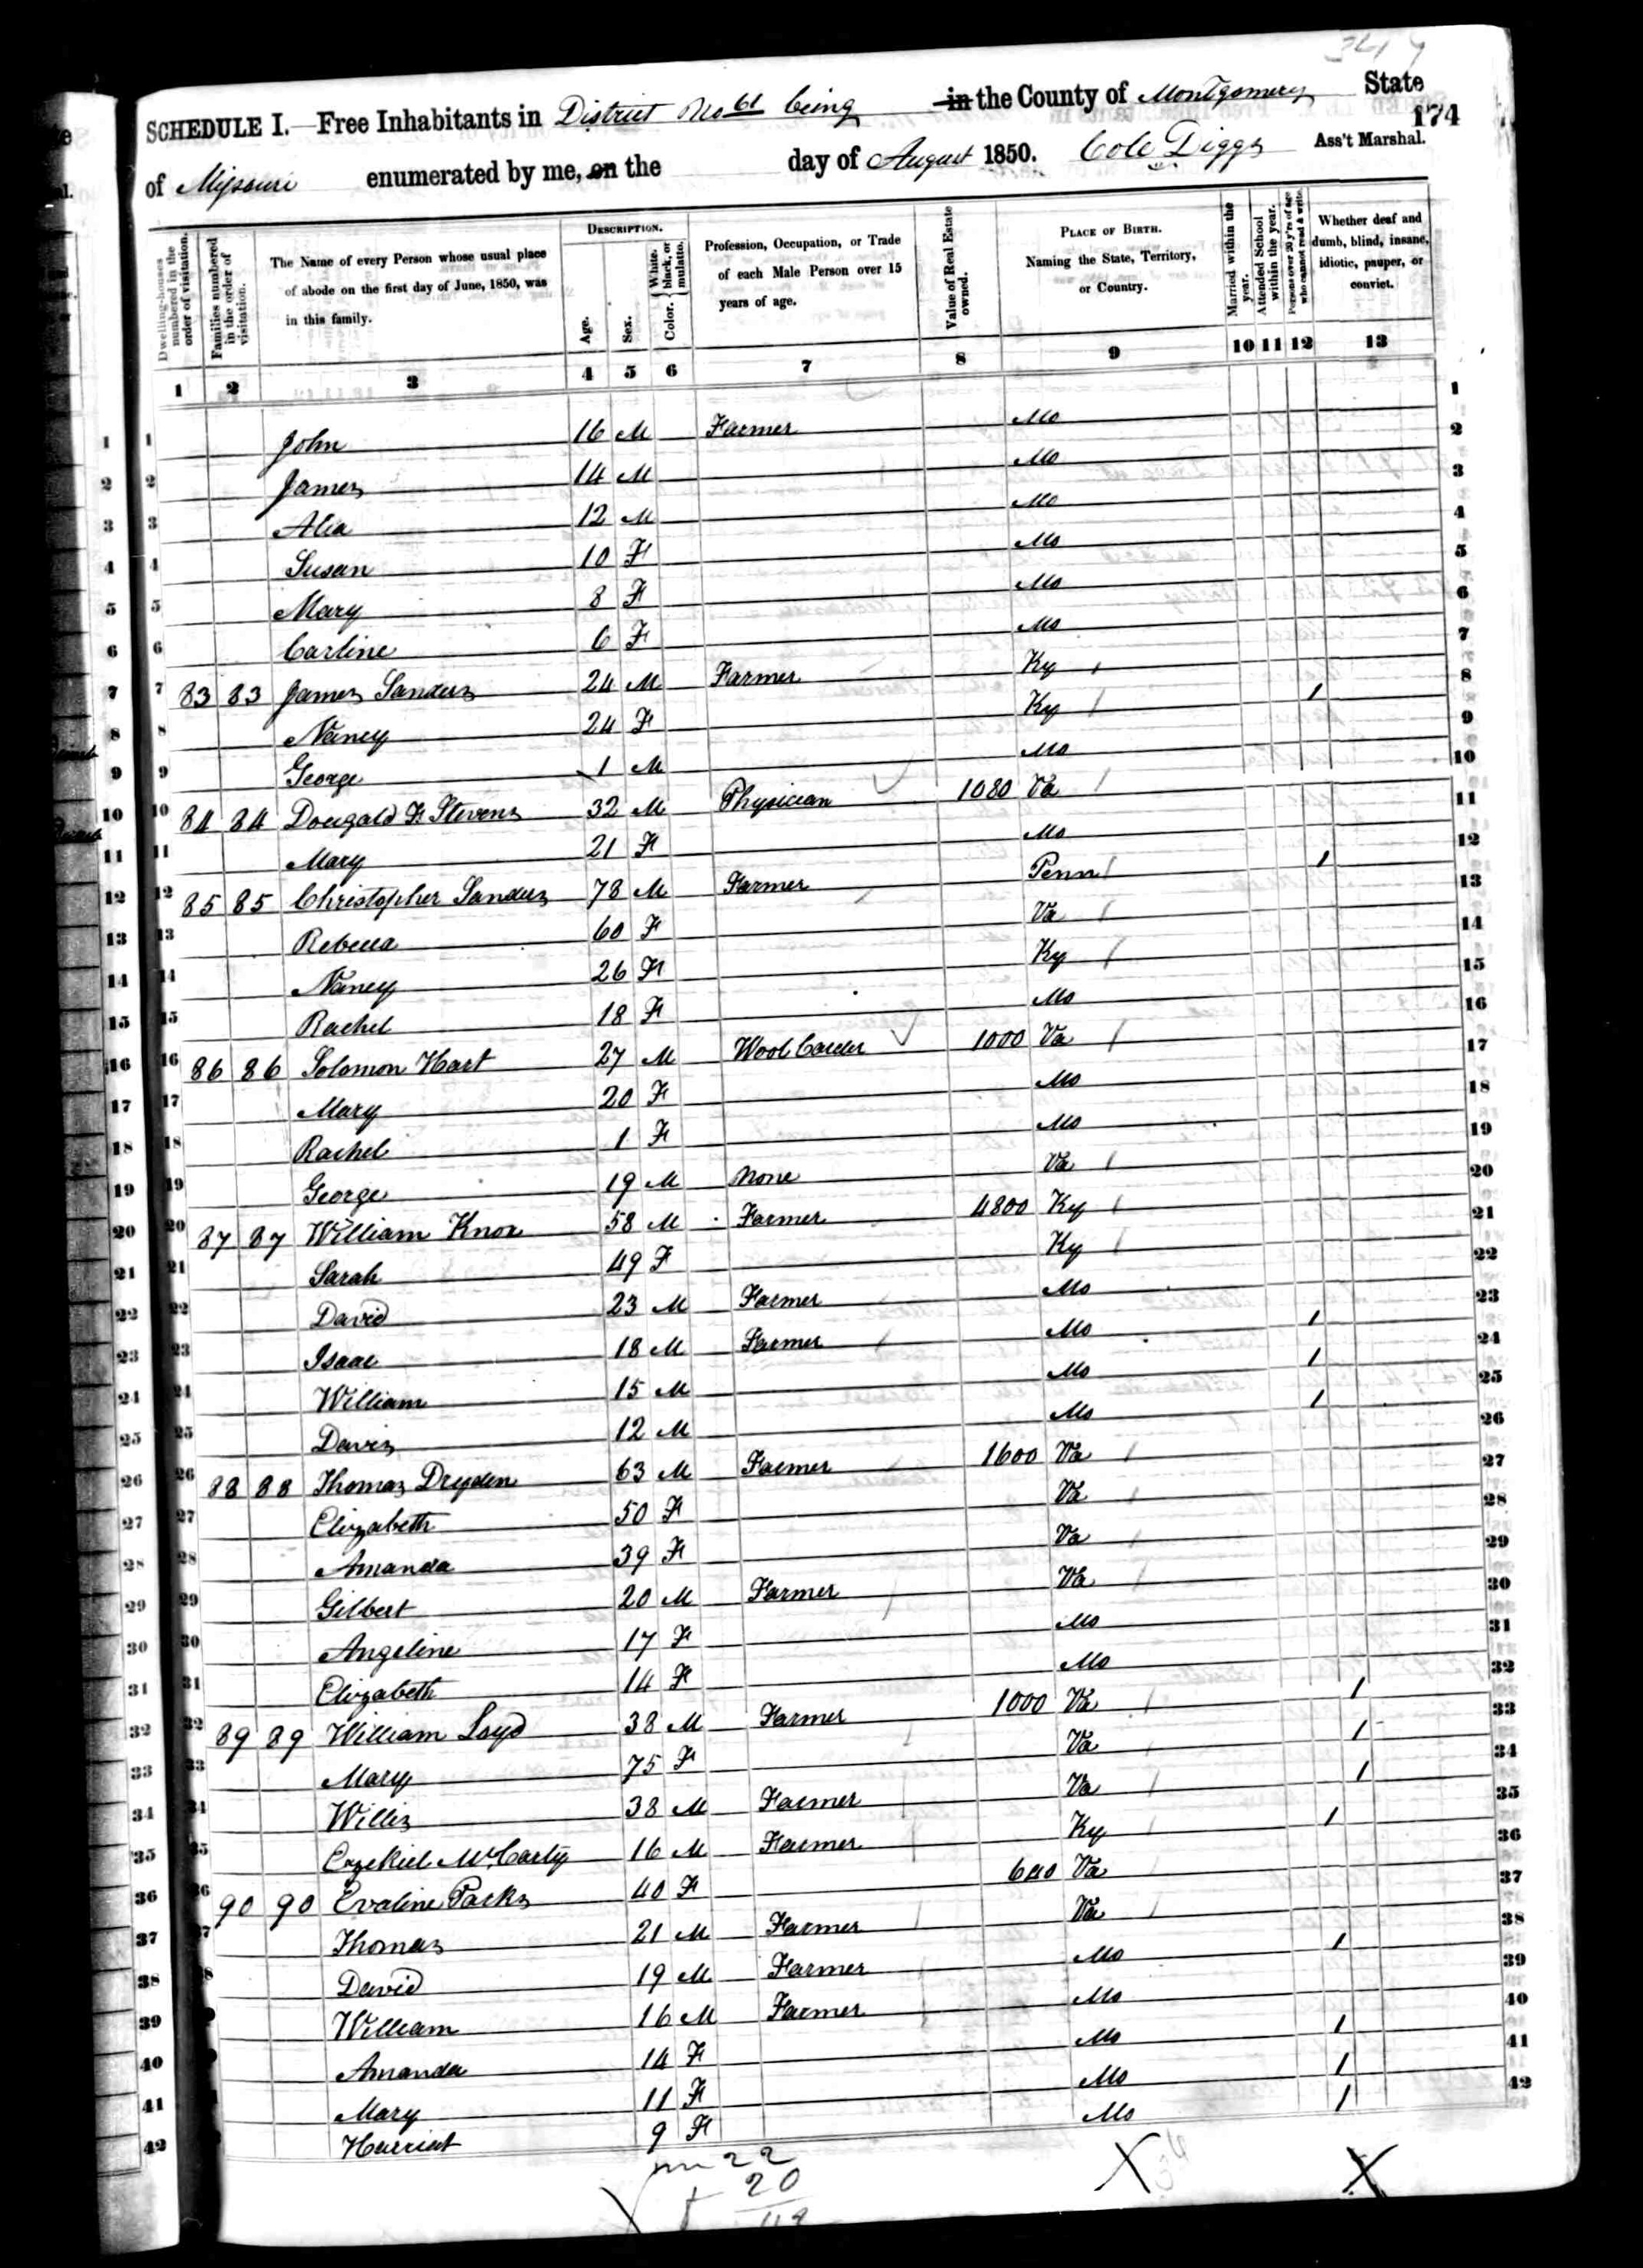 3417
SCHEDULE I.—Free Inhabitants in District No 61 being in the County of Montgomery State
174
of Missouri enumerated by me, on the day of August 1850. Cole Diggs Ass't Marshal.
Dwelling-houses numbered in the order of visitation.
Families numbered in the order of visitation.
The Name of every Person whose usual place of abode on the first day of June, 1850, was in this family.
DESCRIPTION.
Age.
Sex.
Color. { White, black, or mulatto.
Profession, Occupation, or Trade of each Male Person over 15 years of age.
Value of Real Estate owned.
PLACE OF BIRTH. Naming the State, Territory, or Country.
Married within the year.
Attended School within the year.
Persons over 20 y'rs of age who cannot read & write.
Whether deaf and dumb, blind, insane, idiotic, pauper, or convict.
1 2 3 4 5 6 7 8 9 10 11 12 13
1 John 16 M Farmer Mo 1
2 James 14 M Mo 2
3 12 M Mo 3
4 Susan 10 F Mo 4
5 Mary 8 F Mo 5
6 Carline 6 F Mo 6
7 83 83 James Sanders 24 M Farmer Ky 7
8 Nancy 24 F Ky 1 8
9 George 1 M Mo 9
10 84 84 Dougald F Stevens 32 M Physician 1080 Va 10
11 Mary 21 F Mo 11
12 85 85 Christopher Sanders 78 M Farmer Penn 1 12
13 Rebecca 60 F Va 13
14 Nancy 26 F Ky 14
15 Rachel 18 F Mo 15
16 86 86 Solomon Hart 27 M Wool Carder 1000 Va 16
17 Mary 20 F Mo 17
18 Rachel 1 F Mo 18
19 George 19 M None Va 19
20 87 87 William Knox 58 M Farmer 4800 Ky 20
21 Sarah 49 F Ky 21
22 David 23 M Farmer Mo 22
23 Isaac 18 M Farmer Mo 1 23
24 William 15 M Mo 1 24
25 Davis 12 M Mo 1 25
26 88 88 Thomas Dryden 63 M Farmer 1600 Va 26
27 Elizabeth 50 F Va 27
28 Amanda 39 F Va 28
29 Gilbert 20 M Farmer Va 29
30 Angeline 17 F Mo 30
31 Elizabeth 14 F Mo 31
32 89 89 William Loyd 38 M Farmer 1000 Va 1 32
33 Mary 75 F Va 1 33
34 Willis 38 M Farmer Va 1 34
35 Ezekiel McCarty 16 M Farmer Ky 1 35
36 90 90 Evaline Parks 40 F Va 36
37 Thomas 21 M Farmer Va 37
38 David 19 M Farmer Mo 1 38
39 William 16 M Farmer Mo 39
40 Amanda 14 F Mo 1 40
41 Mary 11 F Mo 1 41
42 Harriet 9 F Mo 1 42
22
20